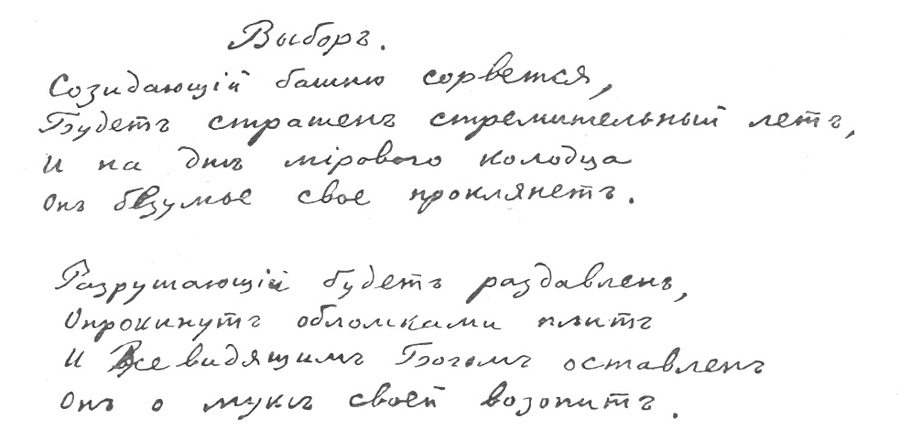 Выборъ.
Созидающій башню сорвется,
Будетъ страшенъ стремительный летъ,
И на днѣ мірового колодца
Онъ безумье свое проклянетъ.
Разрушающій будетъ раздавленъ,
Опрокинутъ обломками плитъ
И Всевидящимъ Богомъ оставленъ
Онъ о мукѣ своей возопитъ.